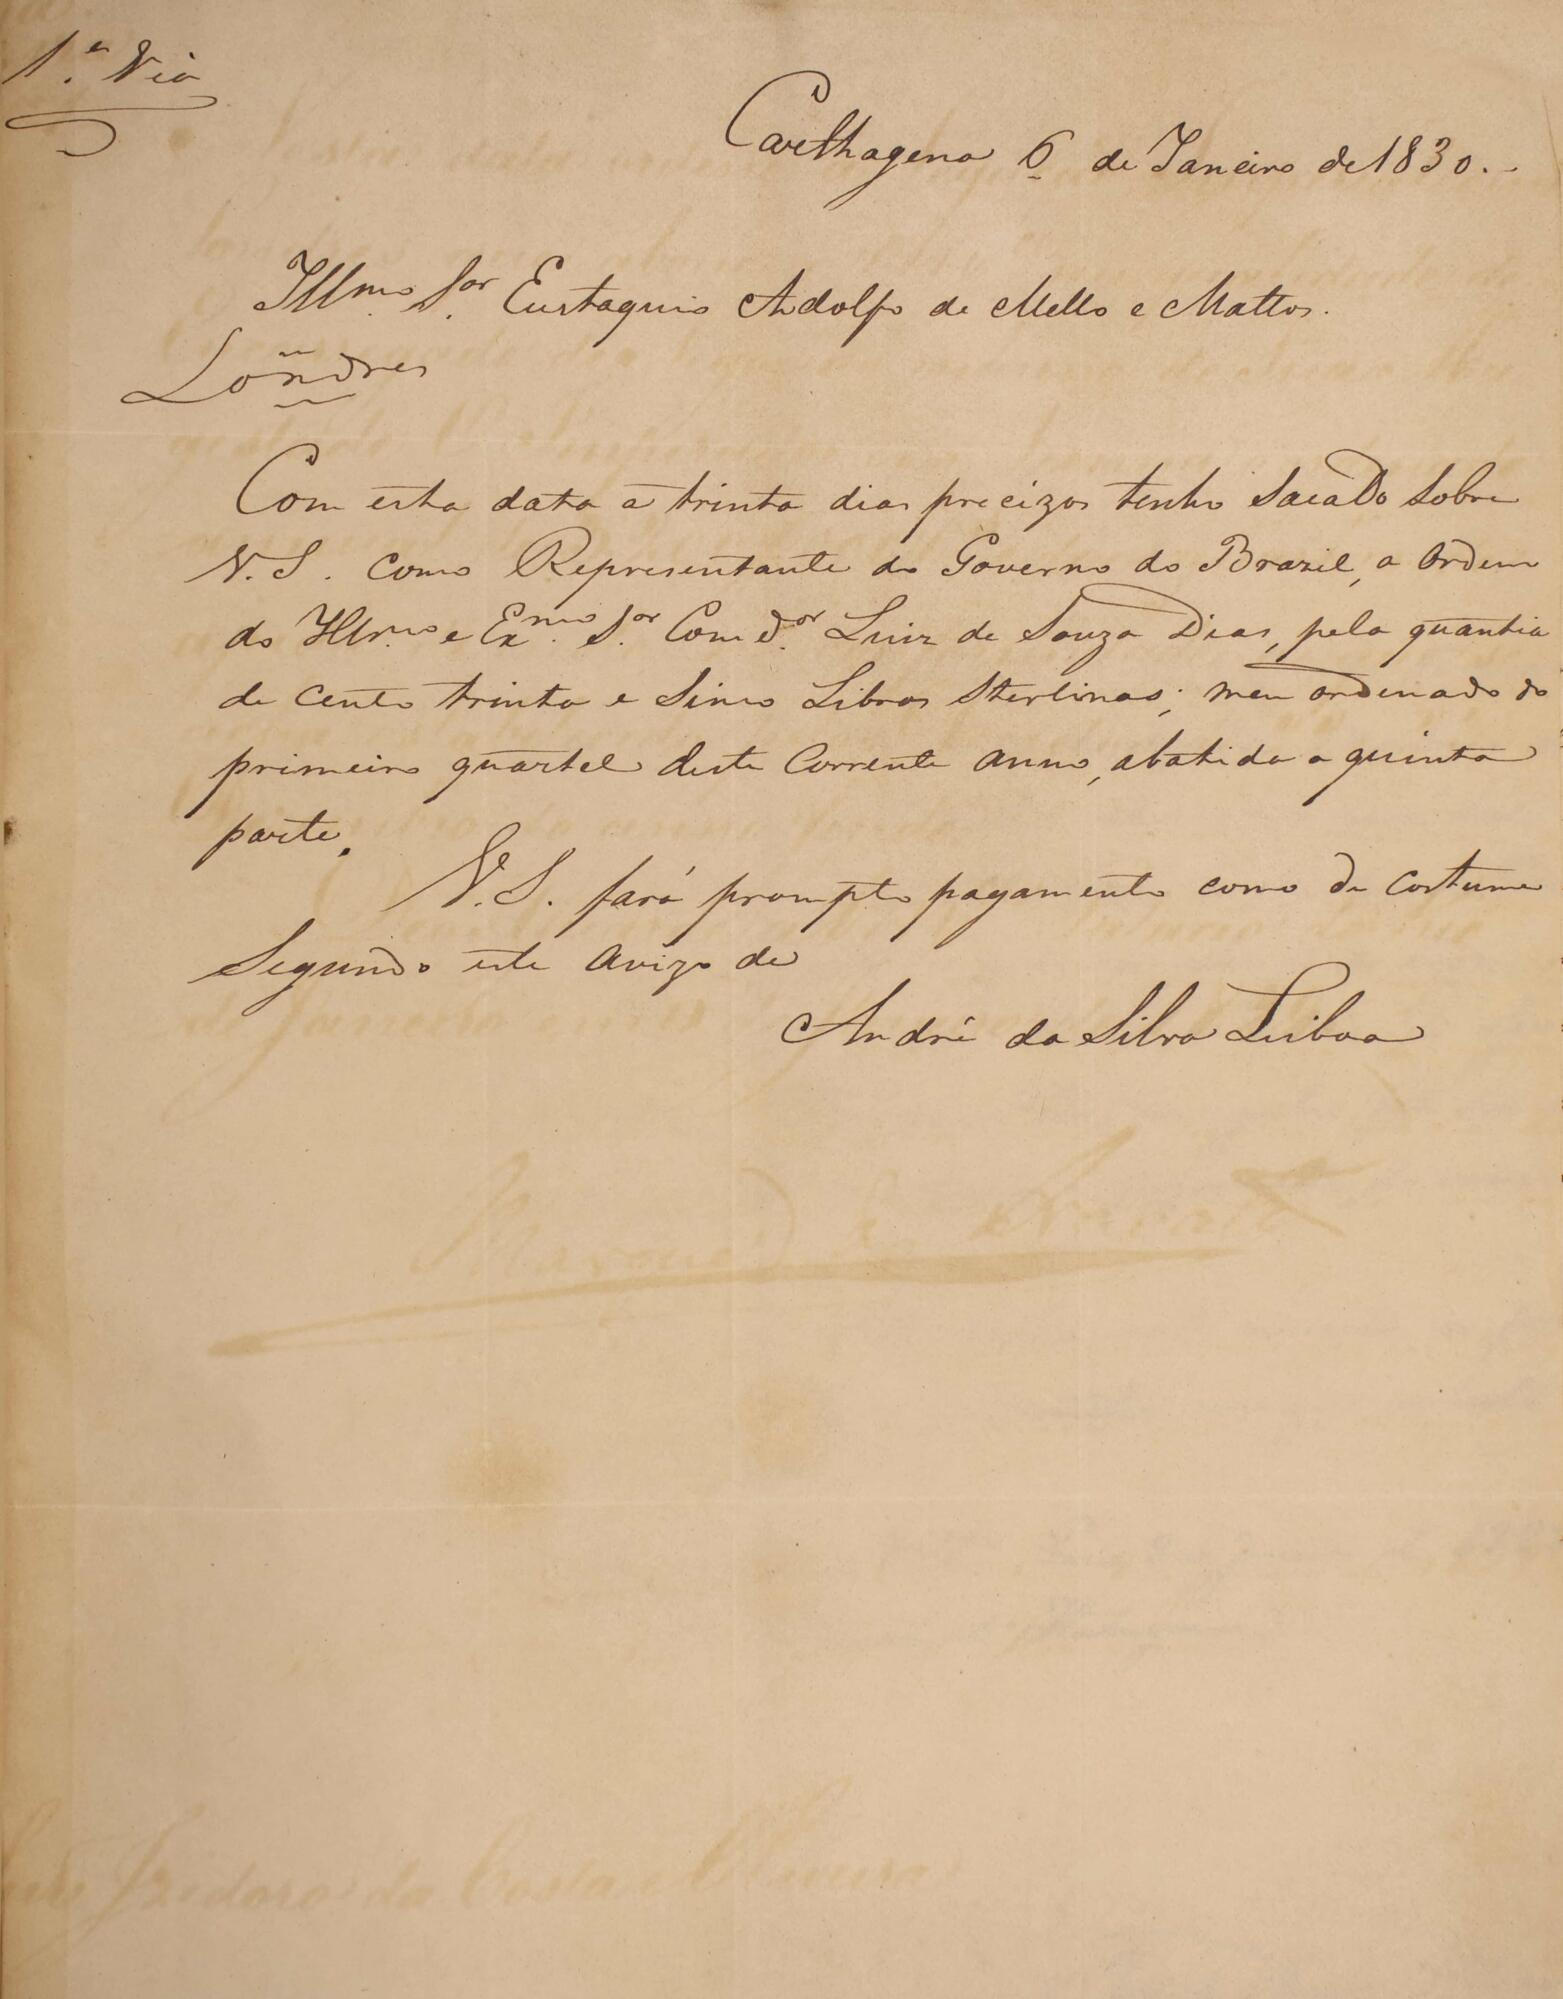 1.ª Via
Carthagena 6 de Janeiro de 1830.
Illmo. Sor. Eustaquio Adolfo de Mello e Mattos.
Londres
Com esta data a trinta dias precizos tenho Sacado Sobre
V. S. como Representante do Governo do Brazil, a Ordem
do Illmo. e Exmo. Sor. Comdor. Luiz de Souza Dias, pela quantia
de cento trinta e Sinco Libras Sterlinas; meu ordenado do
primeiro quartel deste Corrente anno, abatida a quinta
parte.
V. S. fará prompto pagamento como de costume
Segundo este avizo de
André da Silva Lisboa
Izidoro da Costa e Oliveira